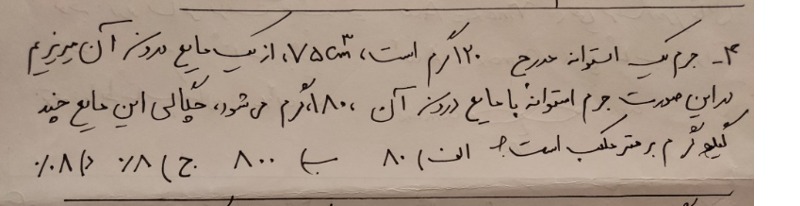 ۴- جرم یک استوانه مدرج ۱۲۰ گرم است، ۷۵cm³، از یک مایع درون آن میریزیم
در این صورت جرم استوانه با مایع درون آن، ۱۸۰ گرم می‌شود، چگالی این مایع چند
کیلوگرم بر متر مکعب است؟ الف) ۸۰ ب) ۸۰۰ ج) ۸٪ د) ۰۸٪